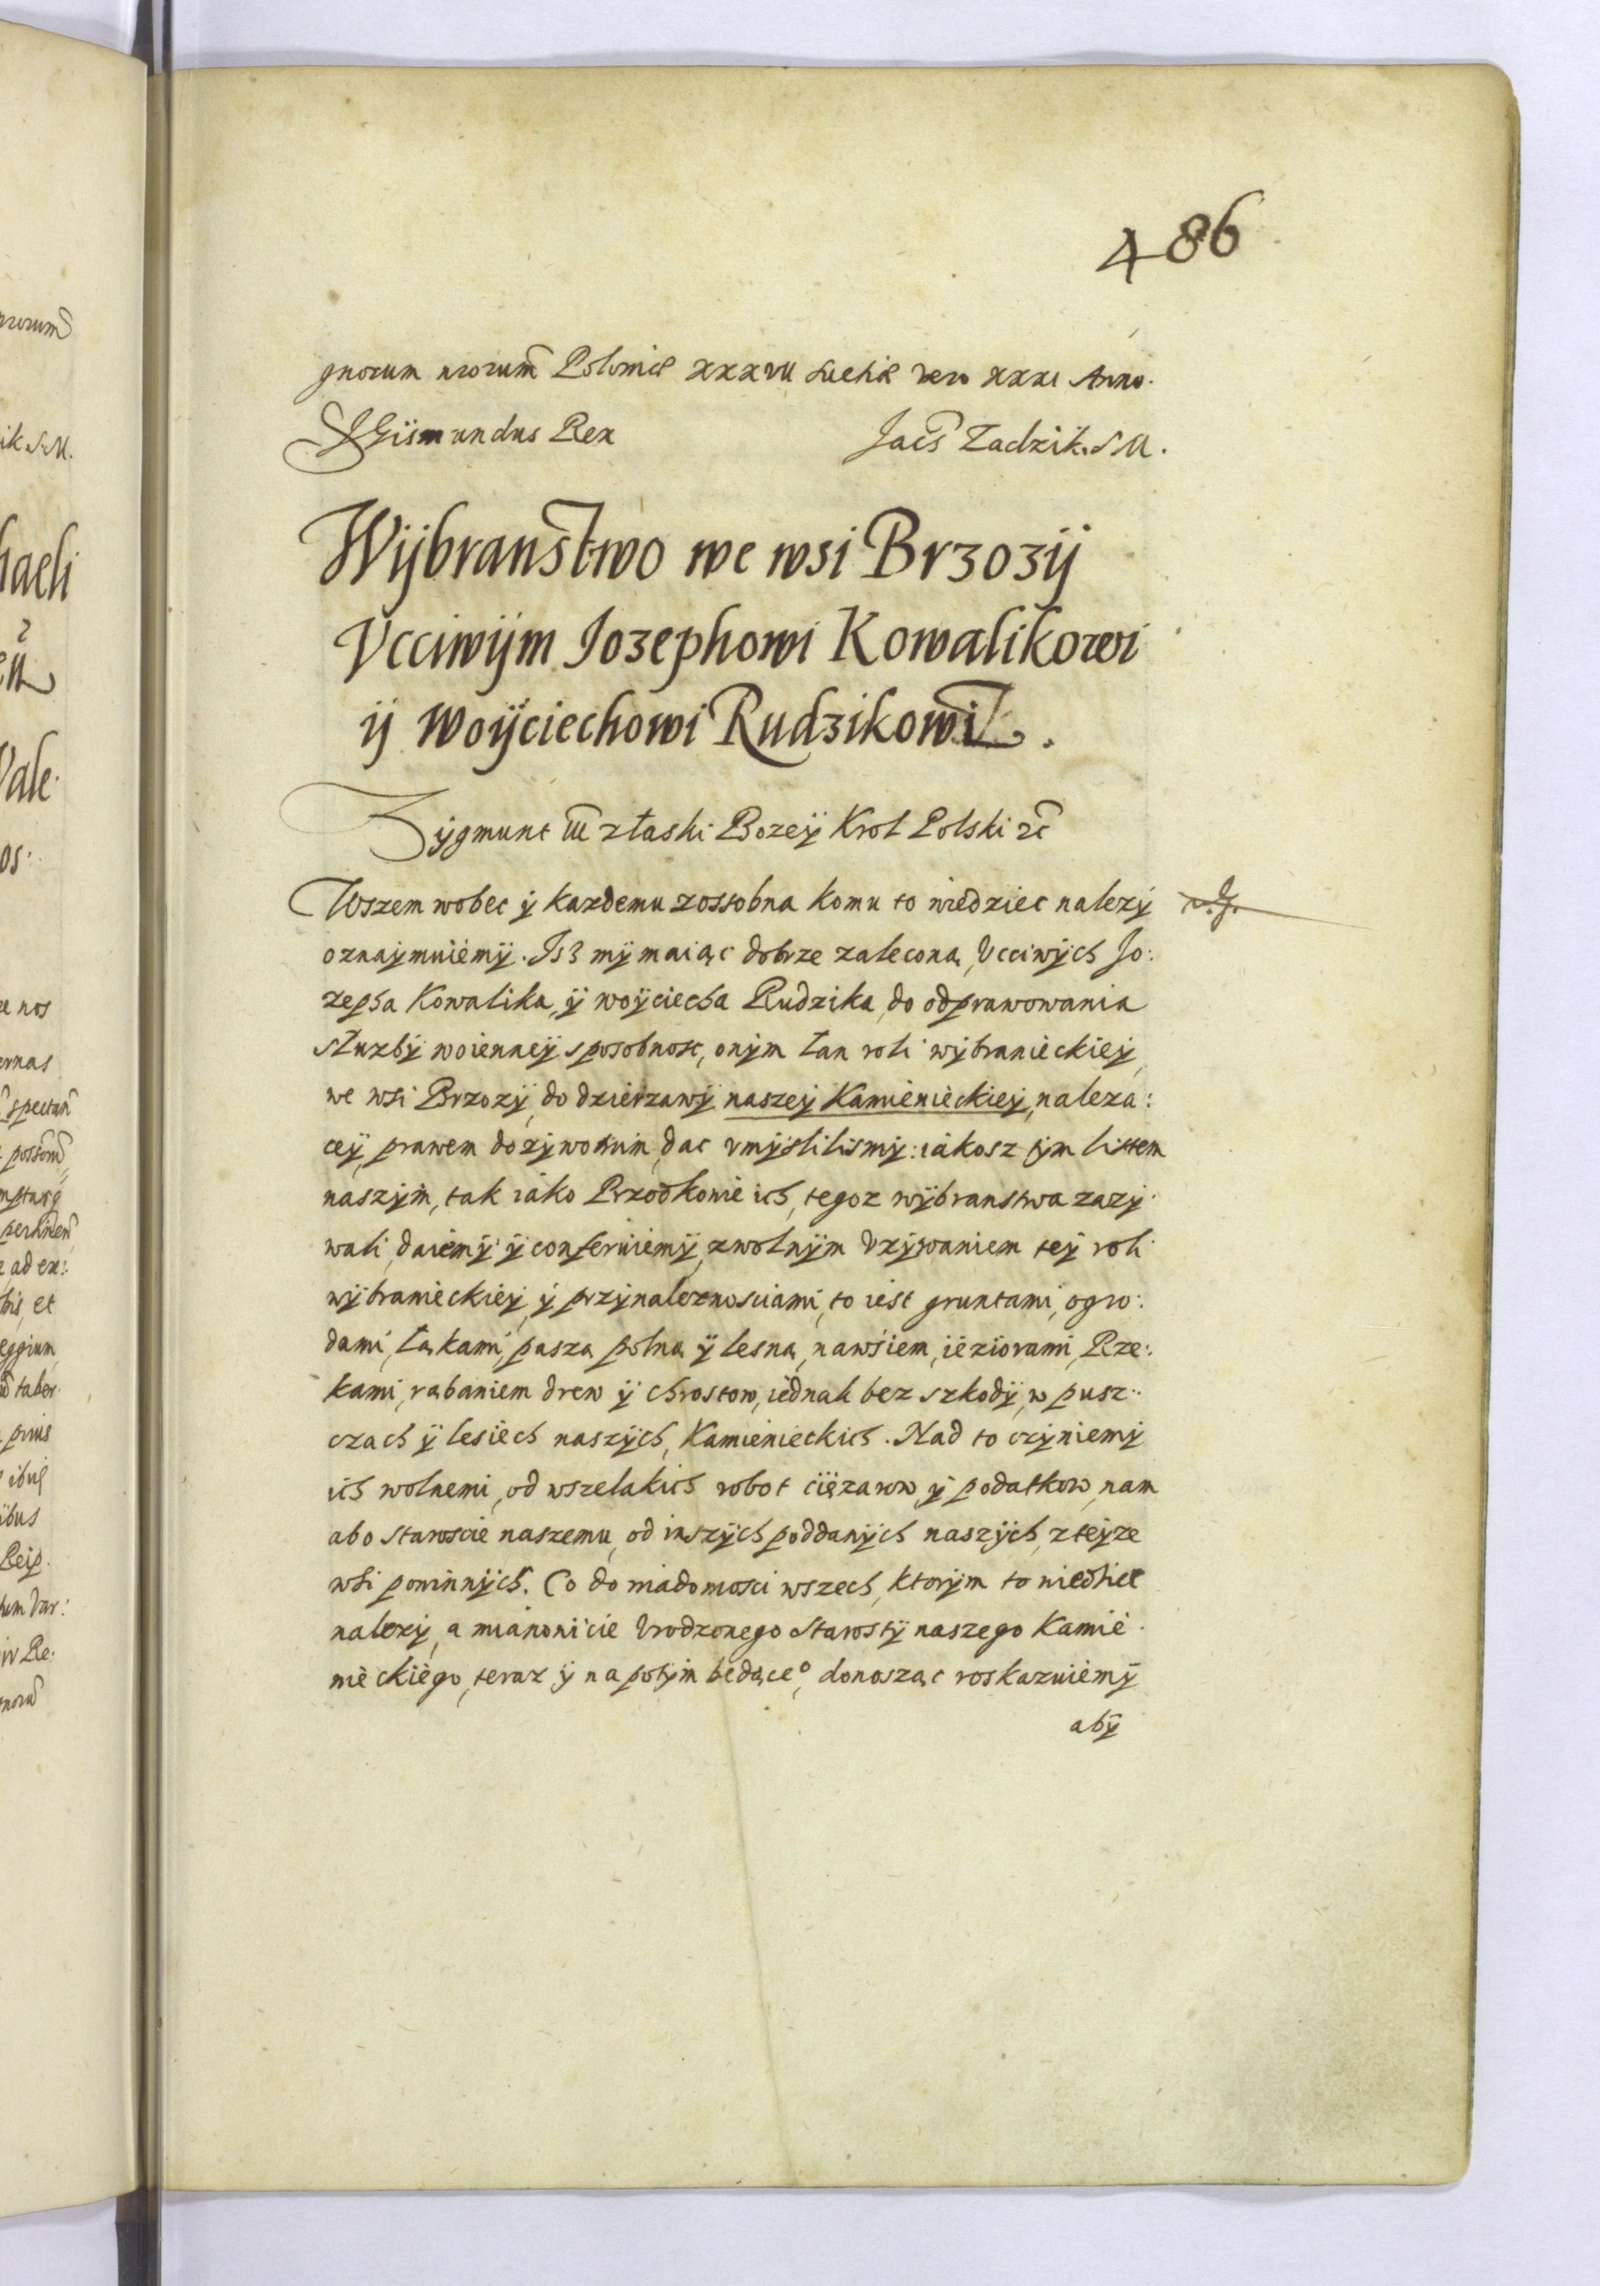 486
gnorum nrorum Poloniæ XXXVII Suetiæ vero XXXI Anno.
SGiismundus Rex Jacs Zadzik. S M.
Wÿbranstwo we wsi Brzozÿ
Vcciwÿm Iozephowi Kowalikowi
ÿ Woÿciechowi Rudzikowi.
Zÿgmunt III z łaski Bozeÿ Krol Polski
Wszem wobec ÿ kazdemu zossobna komu to wiedziec nalezÿ
oznaÿmuiemÿ. Isz mÿ maiąc dobrze zaleconą Vcciwÿch Jo:
zepha Kowalika, ÿ woÿciecha Rudzika, do odprawowania
służbÿ woienneÿ sposobnosc, onÿm łan roli wÿbranieckieÿ,
we wsi Brzozÿ, do dzierzawÿ naszeÿ Kamienieckieÿ, naleza:
ceÿ, prawem dozÿwotnim, dac vmÿslilismÿ: iakosz tÿm listem
naszÿm, tak iako Przodkowie ich, tegoz wÿbranstwa zazÿ
wali, daiemÿ ÿ conferuiemÿ, z wolnÿm vzÿwaniem teÿ roli
wÿbranieckieÿ, ÿ przÿnaleznosciami, to iest gruntami, ogro:
dami, łąkami, paszą polną ÿ lesną, nawsiem, ieziorami, Rze:
kami, rąbaniem drew ÿ chrostow, iednak bez szkodÿ, w pusz:
czach ÿ lesiech naszÿch, Kamienieckich. Nad to czÿniemÿ
ich wolnemi, od wszelakich robot ciężarow ÿ podatkow, nam
abo staroscie naszemu, od inszÿch poddanÿch naszÿch, z teÿze
wsi powinnÿch. Co do wiadomosci wszech, ktorÿm to wiedziec
nalezÿ, a mianowicie Vrodzonego Starostÿ naszego Kamie
nieckiego, teraz ÿ na potÿm bedąceo, donosząc roskazuiemÿ
abÿ